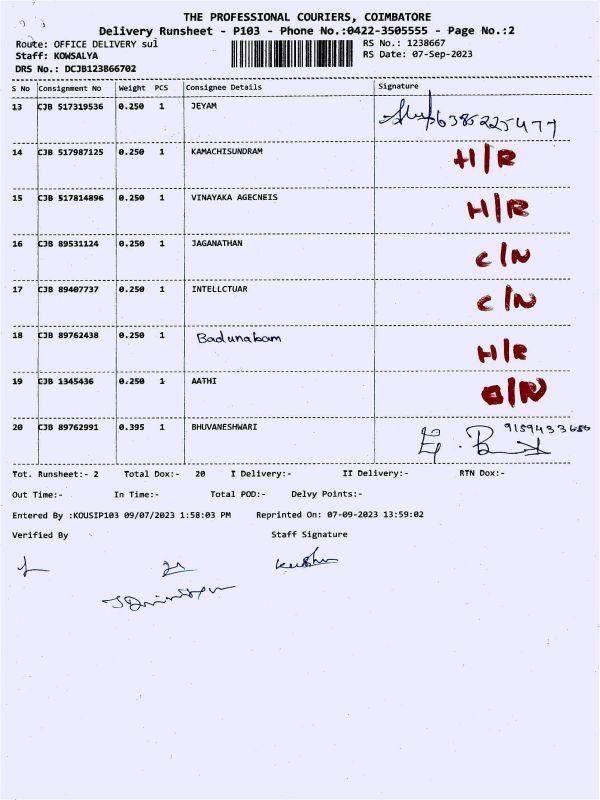 THE PROFESSIONAL COURIERS, COIMBATORE
Delivery Runsheet - P103 - Phone No.:0422-3505555 - Page No.:2
Route: OFFICE DELIVERY sul RS No.: 1238667
Staff: KOWSALYA RS Date: 07-Sep-2023
DRS No.: DCJB123866702
S No Consignment No Weight PCS Consignee Details Signature
13 CJB 517319536 0.250 1 JEYAM 6385225477
14 CJB 517987125 0.250 1 KAMACHISUNDRAM H/R
15 CJB 517814896 0.250 1 VINAYAKA AGECNEIS H/R
16 CJB 89531124 0.250 1 JAGANATHAN C/N
17 CJB 89407737 0.250 1 INTELLCTUAR C/N
18 CJB 89762438 0.250 1 Badunabam H/R
19 CJB 1345436 0.250 1 AATHI /N
20 CJB 89762991 0.395 1 BHUVANESHWARI
Tot. Runsheet:- 2 Total Dox:- 20 I Delivery:- II Delivery:- RTN Dox:-
Out Time:- In Time:- Total POD:- Delvy Points:-
Entered By :KOUSIP103 09/07/2023 1:58:03 PM Reprinted On: 07-09-2023 13:59:02
Verified By Staff Signature